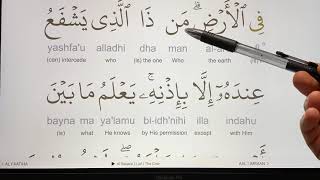 فِي الْأَرْضِ ۗ مَن ذَا الَّذِي يَشْفَعُ
yashfa'u alladhi dha man al-ar
(can) intercede who (is) the one Who the earth
عِندَهُ إِلَّا بِإِذْنِهِ ۚ يَعْلَمُ مَا بَيْنَ
bayna ma ya'lamu bi-idh'nihi illa indahu
(is) what He knows by His permission except with Him